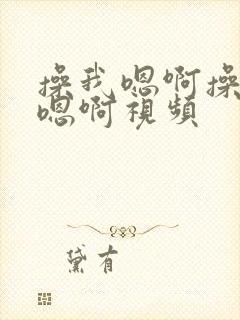 操我嗯啊操
嗯啊視頻
黛有